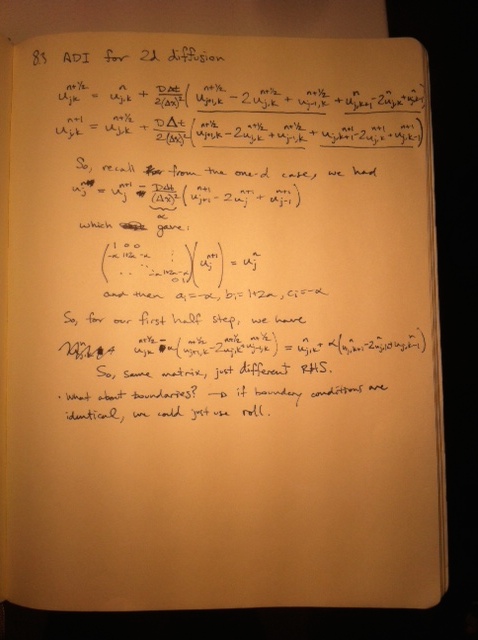 8.3 ADI for 2d diffusion
u_{jk}^{n+1/2} = u_{j,k}^{n} + DΔt/2(Δx)² ( u_{j+1,k}^{n+1/2} - 2u_{j,k}^{n+1/2} + u_{j-1,k}^{n+1/2} + u_{j,k+1}^{n} - 2u_{j,k}^{n} + u_{j,k-1}^{n} )
u_{jk}^{n+1} = u_{j,k}^{n+1/2} + DΔt/2(Δx)² ( u_{j+1,k}^{n+1/2} - 2u_{j,k}^{n+1/2} + u_{j-1,k}^{n+1/2} + u_{j,k+1}^{n+1} - 2u_{j,k}^{n+1} + u_{j,k-1}^{n+1} )
So, recall from the one-d case, we had
u_j^{n} = u_j^{n+1} - DΔt/(Δx)² ( u_{j+1}^{n+1} - 2u_j^{n+1} + u_{j-1}^{n+1} )
α
which gave:
( 1 0 0
-α 1+2α -α
-α 1+2α -α
0 1 ) ( u_j^{n+1} ) = u_j^{n}
and then a_i = -α, b_i = 1+2α, c_i = -α
So, for our first half step, we have
u_{jk}^{n+1/2} - α( u_{j+1,k}^{n+1/2} - 2u_{j,k}^{n+1/2} + u_{j-1,k}^{n+1/2} ) = u_{j,k}^{n} + α( u_{j,k+1}^{n} - 2u_{j,k}^{n} + u_{j,k-1}^{n} )
So, same matrix, just different RHS.
• What about boundaries? → if boundary conditions are
identical, we could just use roll.